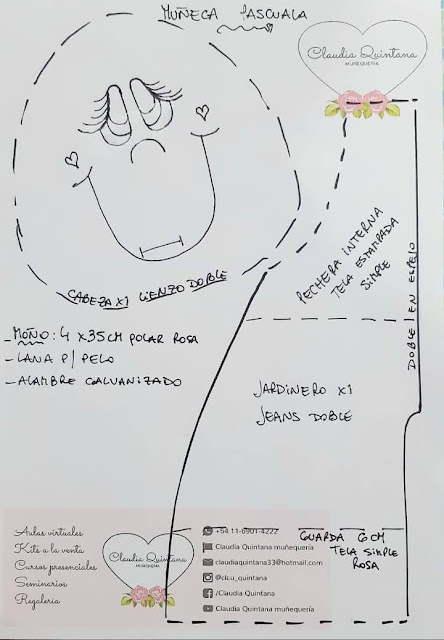 MUÑECA PASCUALA
Claudia Quintana
MUÑEQUERIA
CABEZA X1 LIENZO DOBLE
PECHERA INTERNA
TELA ESTAMPADA
SIMPLE
DOBLE EN ESPEJO
- MOÑO: 4 X 35 CM POLAR ROSA
- LANA P/ PELO
- ALAMBRE GALVANIZADO
JARDINERO X1
JEANS DOBLE
GUARDA 6 CM
TELA SIMPLE
ROSA
Aulas virtuales
Kits a la venta
Cursos presenciales
Seminarios
Regaleria
Claudia Quintana
MUÑEQUERIA
+54 11-6901-4222
Claudia Quintana muñequería
claudiaquintana33@hotmail.com
/Claudia Quintana
Claudia Quintana muñequería